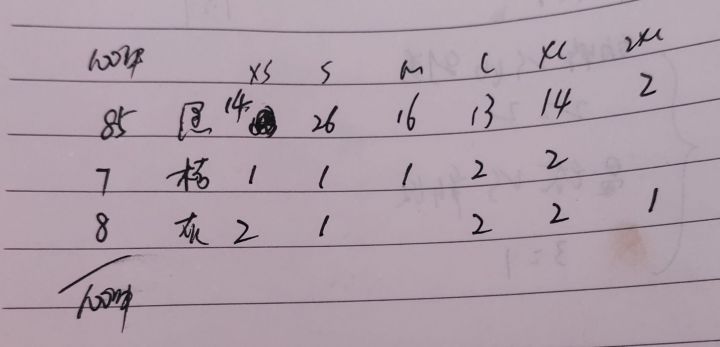 100件
XS S M L XL 2XL
85 黑 14 26 16 13 14 2
7 橘 1 1 1 2 2
8 灰 2 1 2 2 1
100件